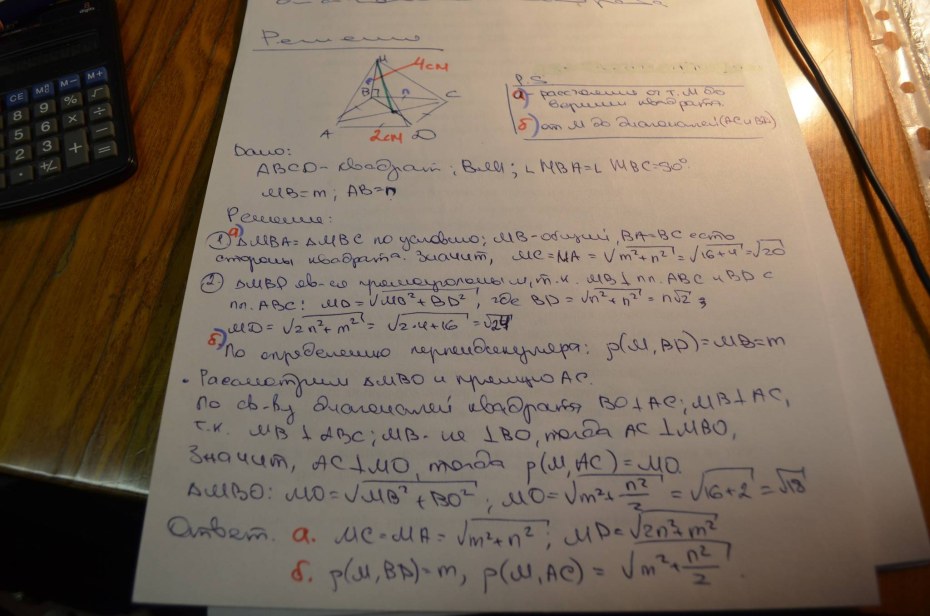 CE M8 M- M+
8 9 % √
5 6 × ÷
2 3 + -
=
Решение
M
4см
B
n
C
A
2см
D
P.S.
а) - расстояния от т. M до
вершин квадрата
б) от M до диагоналей (AC и BD)
Дано:
ABCD - квадрат; ∠MBA = ∠MBC = 90°
MB = m; AB = n
Решение:
а)
1) ΔMBA = ΔMBC по условию; MB - общий, BA = BC есть
стороны квадрата. Значит, MC = MA = √m²+n² = √16+4 = √20
2. ΔMBD яв-ся прямоугольным, т.к. MB ⊥ пл. ABC и BD ⊂
пл. ABC: MD = √MB²+BD², где BD = √n²+n² = n√2;
MD = √2n²+m² = √2·4+16 = √24
б)
По определению перпендикуляра: ρ(M, BD) = MB = m
• Рассмотрим ΔMBO и прямую AC.
По св-ву диагоналей квадрата BO ⊥ AC; MB ⊥ AC,
т.к. MB ⊥ ABC; MB - ⊥ BO, тогда AC ⊥ MBO,
Значит, AC ⊥ MO, тогда ρ(M, AC) = MO.
ΔMBO: MO = √MB²+BO²; MO = √m²+n²/2 = √16+2 = √18
Ответ. а. MC = MA = √m²+n²; MD = √2n²+m²
б. ρ(M, BD) = m, ρ(M, AC) = √m²+n²/2.